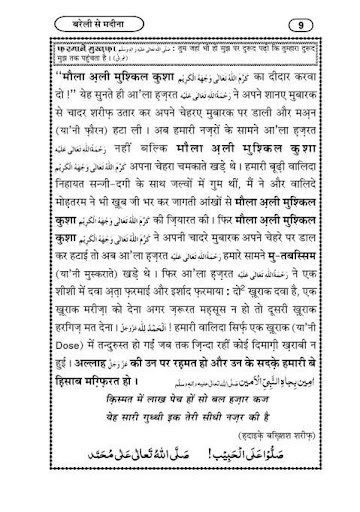 बरेली से मदीना
9
फ़रमाने मुस्तफ़ा صلى الله تعالى عليه واله وسلم : तुम जहां भी हो मुझ पर दुरूद पढ़ो कि तुम्हारा दुरूद
मुझ तक पहुंचता है ।
"मौला अ़ली मुश्किल कुशा كَرَّمَ اللهُ تَعَالٰى وَجْهَهُ الْكَرِيْم का दीदार करवा
दो !" येह सुनते ही आ'ला हज़रत رَحْمَةُ اللهِ تَعَالٰى عَلَيْه ने अपने शानए मुबारक
से चादर शरीफ़ उतार कर अपने चेहरए मुबारक पर डाली और मअ़न
(या'नी फ़ौरन) हटा ली । अब हमारी नज़रों के सामने आ'ला हज़रत
رَحْمَةُ اللهِ تَعَالٰى عَلَيْه नहीं बल्कि मौला अ़ली मुश्किल कुशा
كَرَّمَ اللهُ تَعَالٰى وَجْهَهُ الْكَرِيْم अपना चेहरा चमकाते खड़े थे । हमारी बूढ़ी वालिदा
निहायत सन्जी-दगी के साथ जल्वों में गुम थीं, मैं ने और वालिदे
मोहतरम ने भी ख़ूब जी भर कर जागती आंखों से मौला अ़ली मुश्किल
कुशा كَرَّمَ اللهُ تَعَالٰى وَجْهَهُ الْكَرِيْم की ज़ियारत की । फिर मौला अ़ली मुश्किल
कुशा كَرَّمَ اللهُ تَعَالٰى وَجْهَهُ الْكَرِيْم ने अपनी चादरे मुबारक अपने चेहरे पर डाल
कर हटाई तो अब आ'ला हज़रत رَحْمَةُ اللهِ تَعَالٰى عَلَيْه हमारे सामने मु-तबस्सिम
(या'नी मुस्कराते) खड़े थे । फिर आ'ला हज़रत رَحْمَةُ اللهِ تَعَالٰى عَلَيْه ने एक
शीशी में दवा अ़ता फ़रमाई और इर्शाद फ़रमाया : दो² ख़ूराक दवा है, एक
ख़ूराक मरीज़ा को देना अगर ज़रूरत महसूस न हो तो दूसरी ख़ूराक
हरगिज़ मत देना । اَلْحَمْدُ لِلّٰه عَزَّوَجَلَّ ! हमारी वालिदा सिर्फ़ एक ख़ूराक (या'नी
Dose) में तन्दुरुस्त हो गई जब तक ज़िन्दा रहीं कोई दिमाग़ी ख़राबी न
हुई । अल्लाह عَزَّوَجَلَّ की उन पर रहमत हो और उन के सदक़े हमारी बे
हिसाब मग़्फ़िरत हो । اٰمِيْن بِجَاهِ النَّبِيِّ الْاَمِيْن صلى الله تعالى عليه واله وسلم
क़िस्मत में लाख पेच हों सो बल हज़ार कज
येह सारी गुथ्थी इक तेरी सीधी नज़र की है
(हदाइक़े बख़्शिश शरीफ़)
صَلُّوْا عَلَى الْحَبِيْب! صَلَّى اللهُ تَعَالٰى عَلٰى مُحَمَّد